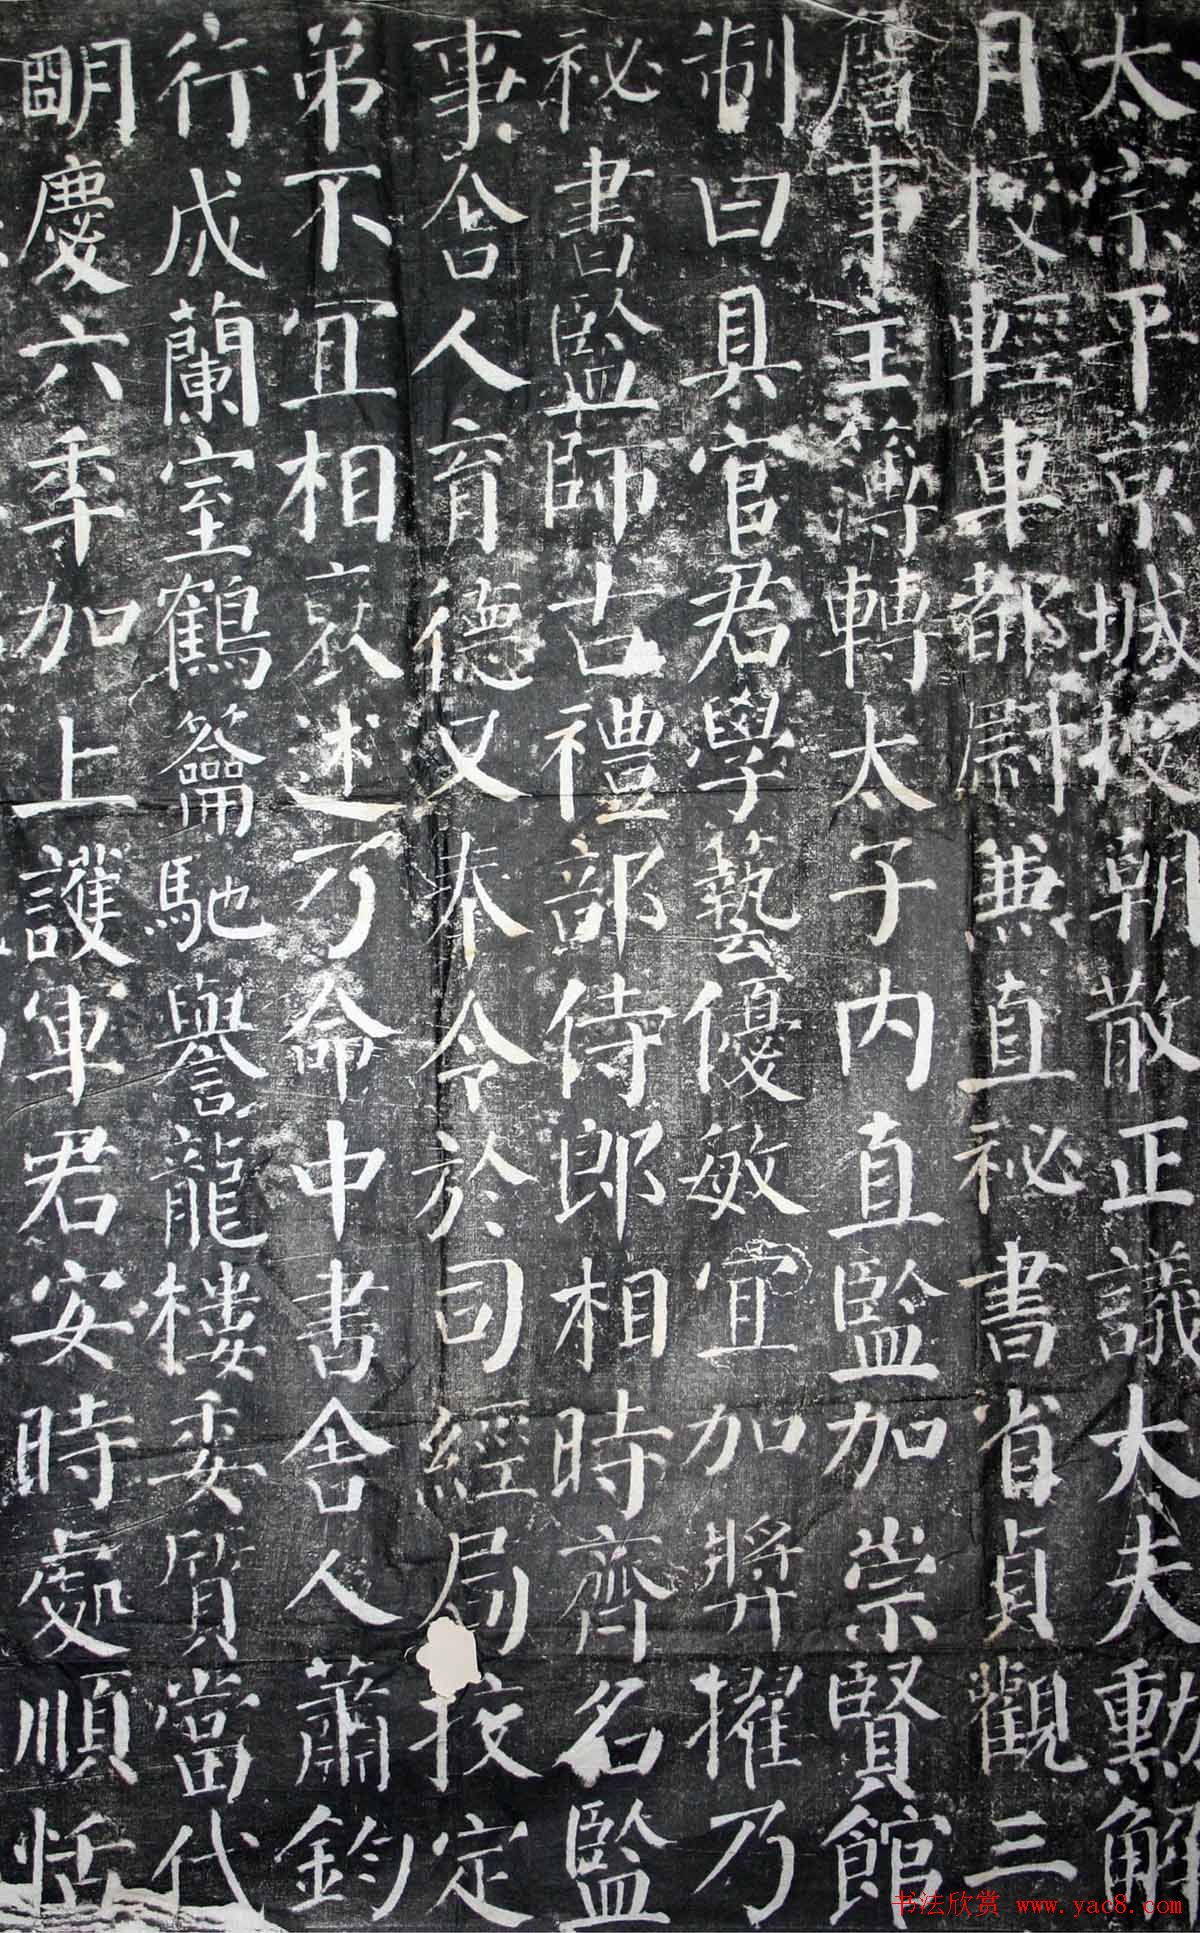 太宗平京城授朝散正議大夫勳解
月授輕車都尉兼直秘書省貞觀三
詹事主簿轉太子内直監加崇賢館
制曰具官君學藝優敏宜加奬擢乃
祕書監師古禮部侍郎相時齊名監
事舍人育德又奉令於司經局校定
弟不宜相褒述乃命中書舍人蕭鈞
行成蘭室鶴籥馳譽龍樓委質當代
朙慶六年加上護軍君安時處順恬
书法欣赏 www.yac8.com